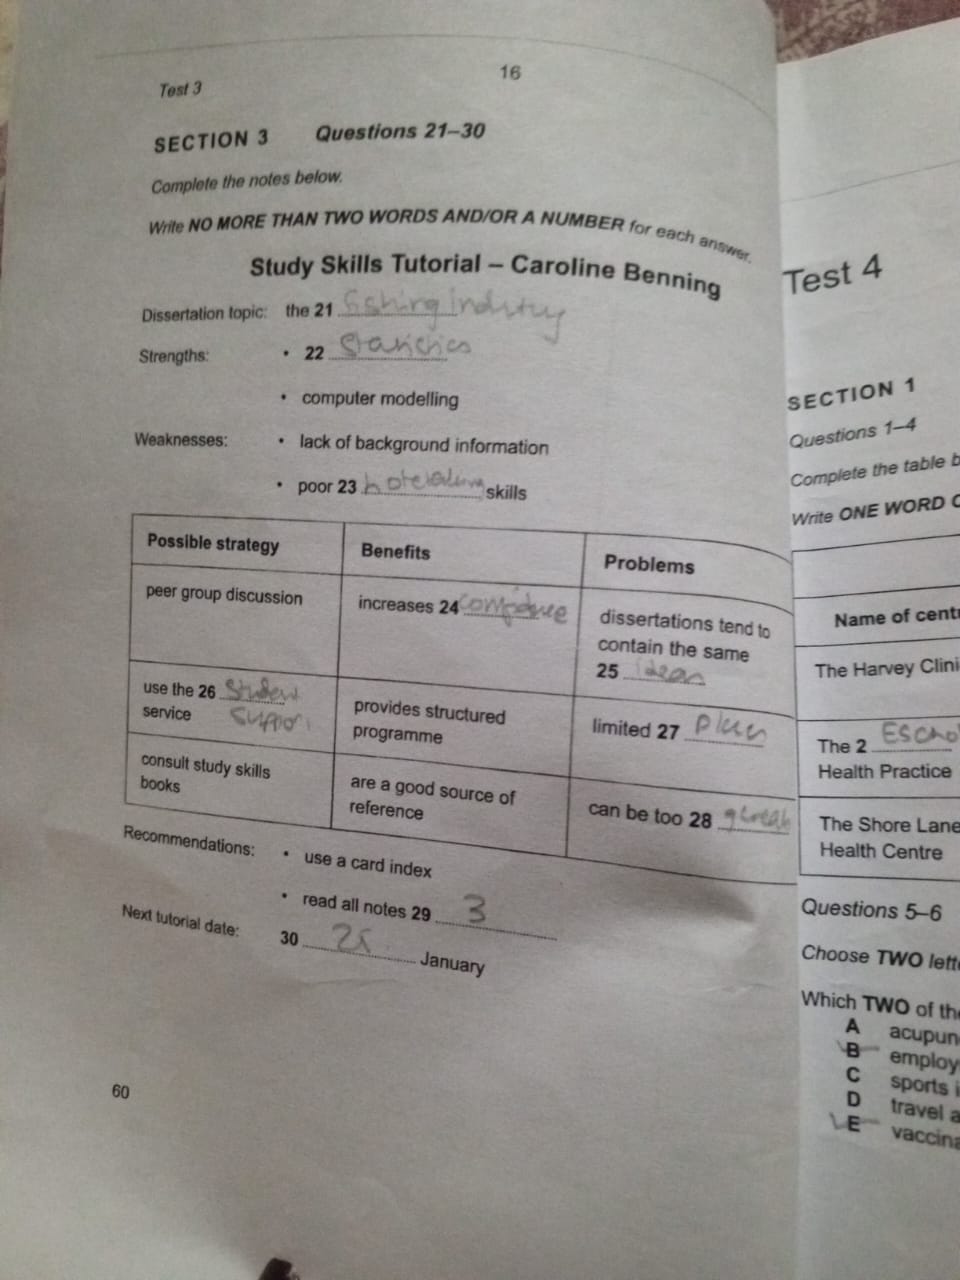 16
Test 3
SECTION 3 Questions 21–30
Complete the notes below.
Write NO MORE THAN TWO WORDS AND/OR A NUMBER for each answer.
Study Skills Tutorial – Caroline Benning
Dissertation topic: the 21 fishing industry
Strengths: • 22 statistics
• computer modelling
Weaknesses: • lack of background information
• poor 23 skills
Possible strategy Benefits Problems
peer group discussion increases 24 dissertations tend to
contain the same
25 ideas
use the 26 student
service support
provides structured
programme
limited 27
consult study skills
books
are a good source of
reference
can be too 28
Recommendations: • use a card index
• read all notes 29 3
Next tutorial date: 30 January
60
Test 4
SECTION 1
Questions 1–4
Complete the table b
Write ONE WORD
Name of cent
The Harvey Clini
The 2
Health Practice
The Shore Lane
Health Centre
Questions 5–6
Choose TWO lett
Which TWO of the
A acupun
B employ
C sports i
D travel a
E vaccina